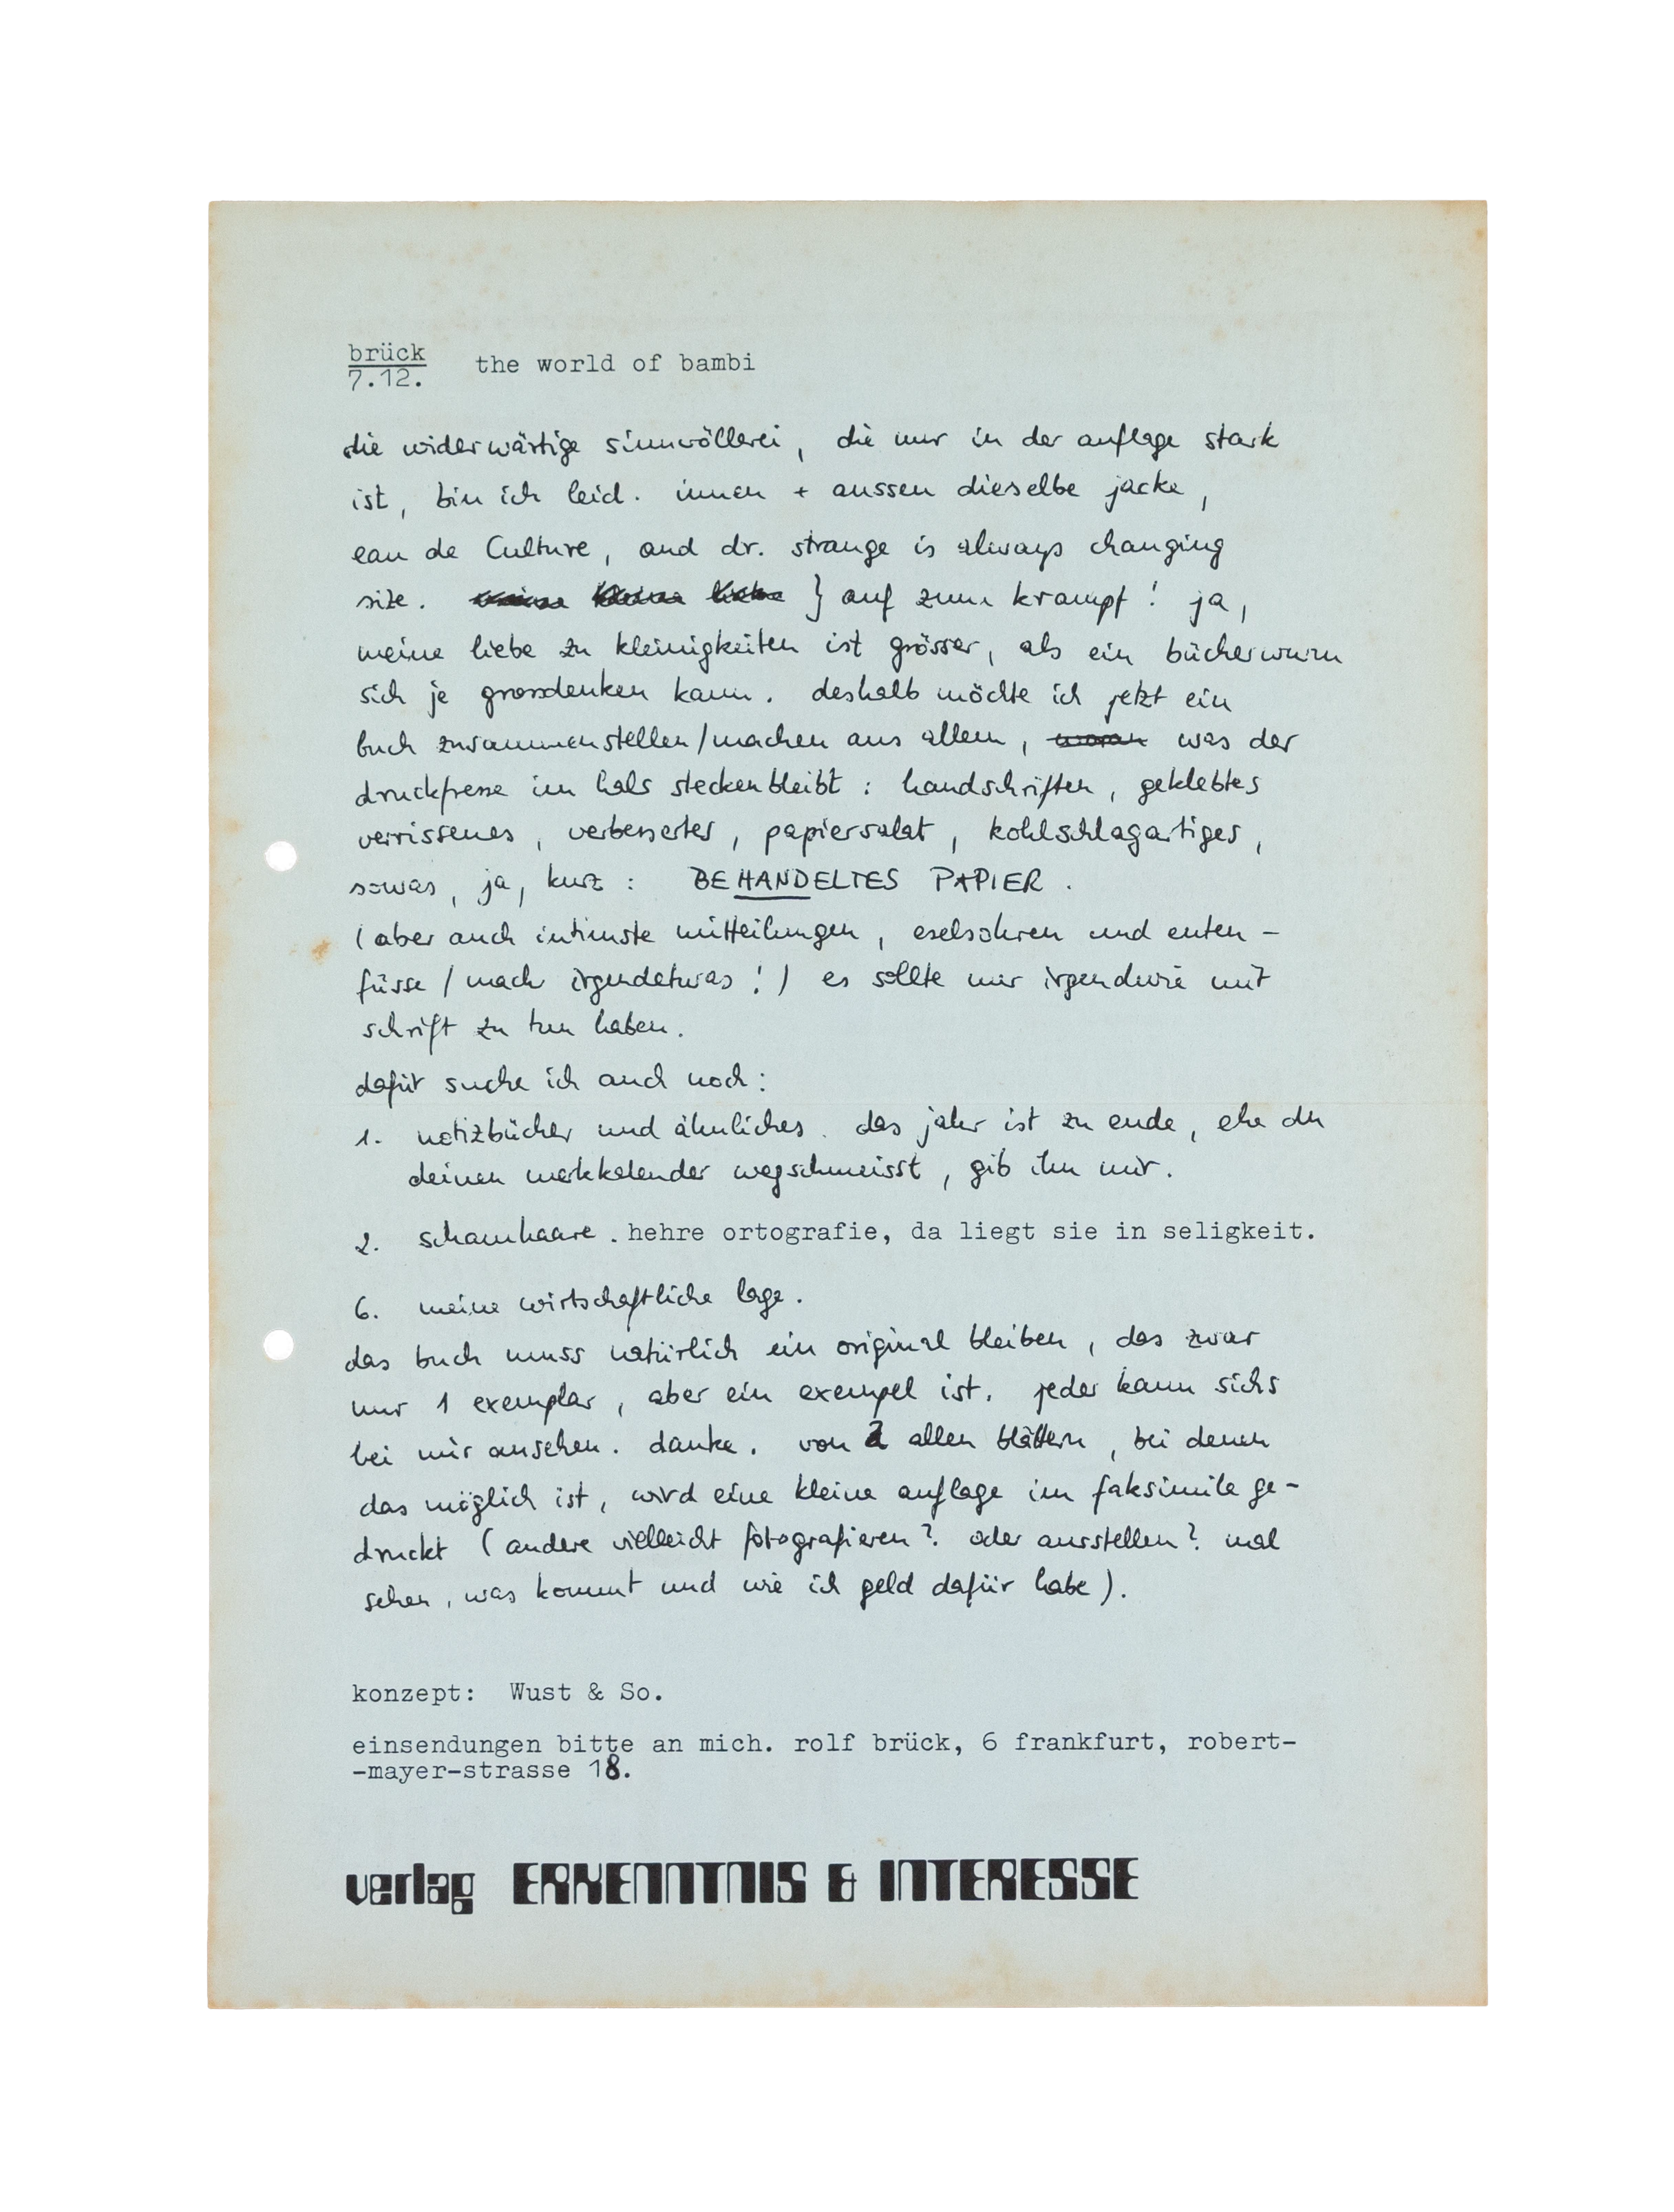 brück
7.12.
the world of bambi
die widerwärtige sinnvöllerei, die nur in der auflage stark
ist, bin ich leid. innen + aussen dieselbe jacke,
eau de Culture, and dr. strange is always changing
size. } auf zum krampf! ja,
meine liebe zu kleinigkeiten ist grösser, als ein bücherwurm
sich je grossdenken kann. deshalb möchte ich jetzt ein
buch zusammenstellen/machen aus allem, woran was der
druckpresse im hals steckenbleibt: handschriften, geklebtes
verrissenes, verbessertes, papiersalat, kohlschlagartiges,
sowas, ja, kurz: BEHANDELTES PAPIER.
(aber auch intimste mitteilungen, eselsohren und enten-
füsse / mach irgendetwas!) es sollte nur irgendwie mit
schrift zu tun haben.
dafür suche ich auch noch:
1. notizbücher und ähnliches. das jahr ist zu ende, ehe du
deinen merkkalender wegschmeisst, gib ihn mir.
2. schamhaare. hehre ortografie, da liegt sie in seligkeit.
6. meine wirtschaftliche lage.
das buch muss natürlich ein original bleiben, das zwar
nur 1 exemplar, aber ein exempel ist. jeder kann sichs
bei mir ansehen. danke. von allen blättern, bei denen
das möglich ist, wird eine kleine auflage im faksimile ge-
druckt (andere vielleicht fotografieren? oder ausstellen? mal
sehen, was kommt und wie ich geld dafür habe).
konzept: Wust & So.
einsendungen bitte an mich. rolf brück, 6 frankfurt, robert-
-mayer-strasse 18.
verlag ERKENNTNIS & INTERESSE